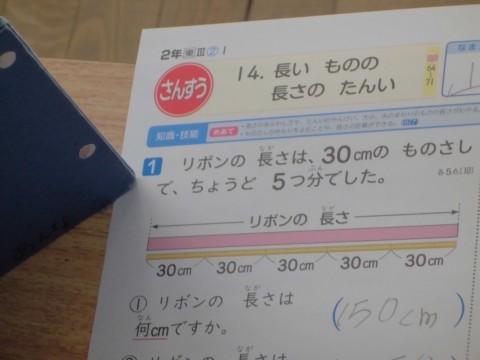 2年 東 Ⅲ ② 1
さんすう
14. 長い ものの
長さの たんい
64
71
知識・技能
めあて
1 リボンの 長さは、30cmの ものさし
で、ちょうど 5つ分でした。
各5点(10)
リボンの 長さ
30cm 30cm 30cm 30cm 30cm
① リボンの 長さは
何cmですか。
(150cm)